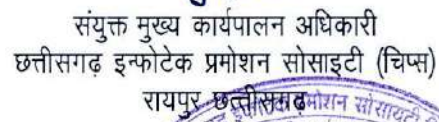 संयुक्त मुख्य कार्यपालन अधिकारी
छत्तीसगढ़ इन्फोटेक प्रमोशन सोसाइटी (चिप्स)
रायपुर छत्तीसगढ़
प्रमोशन सोसायटी